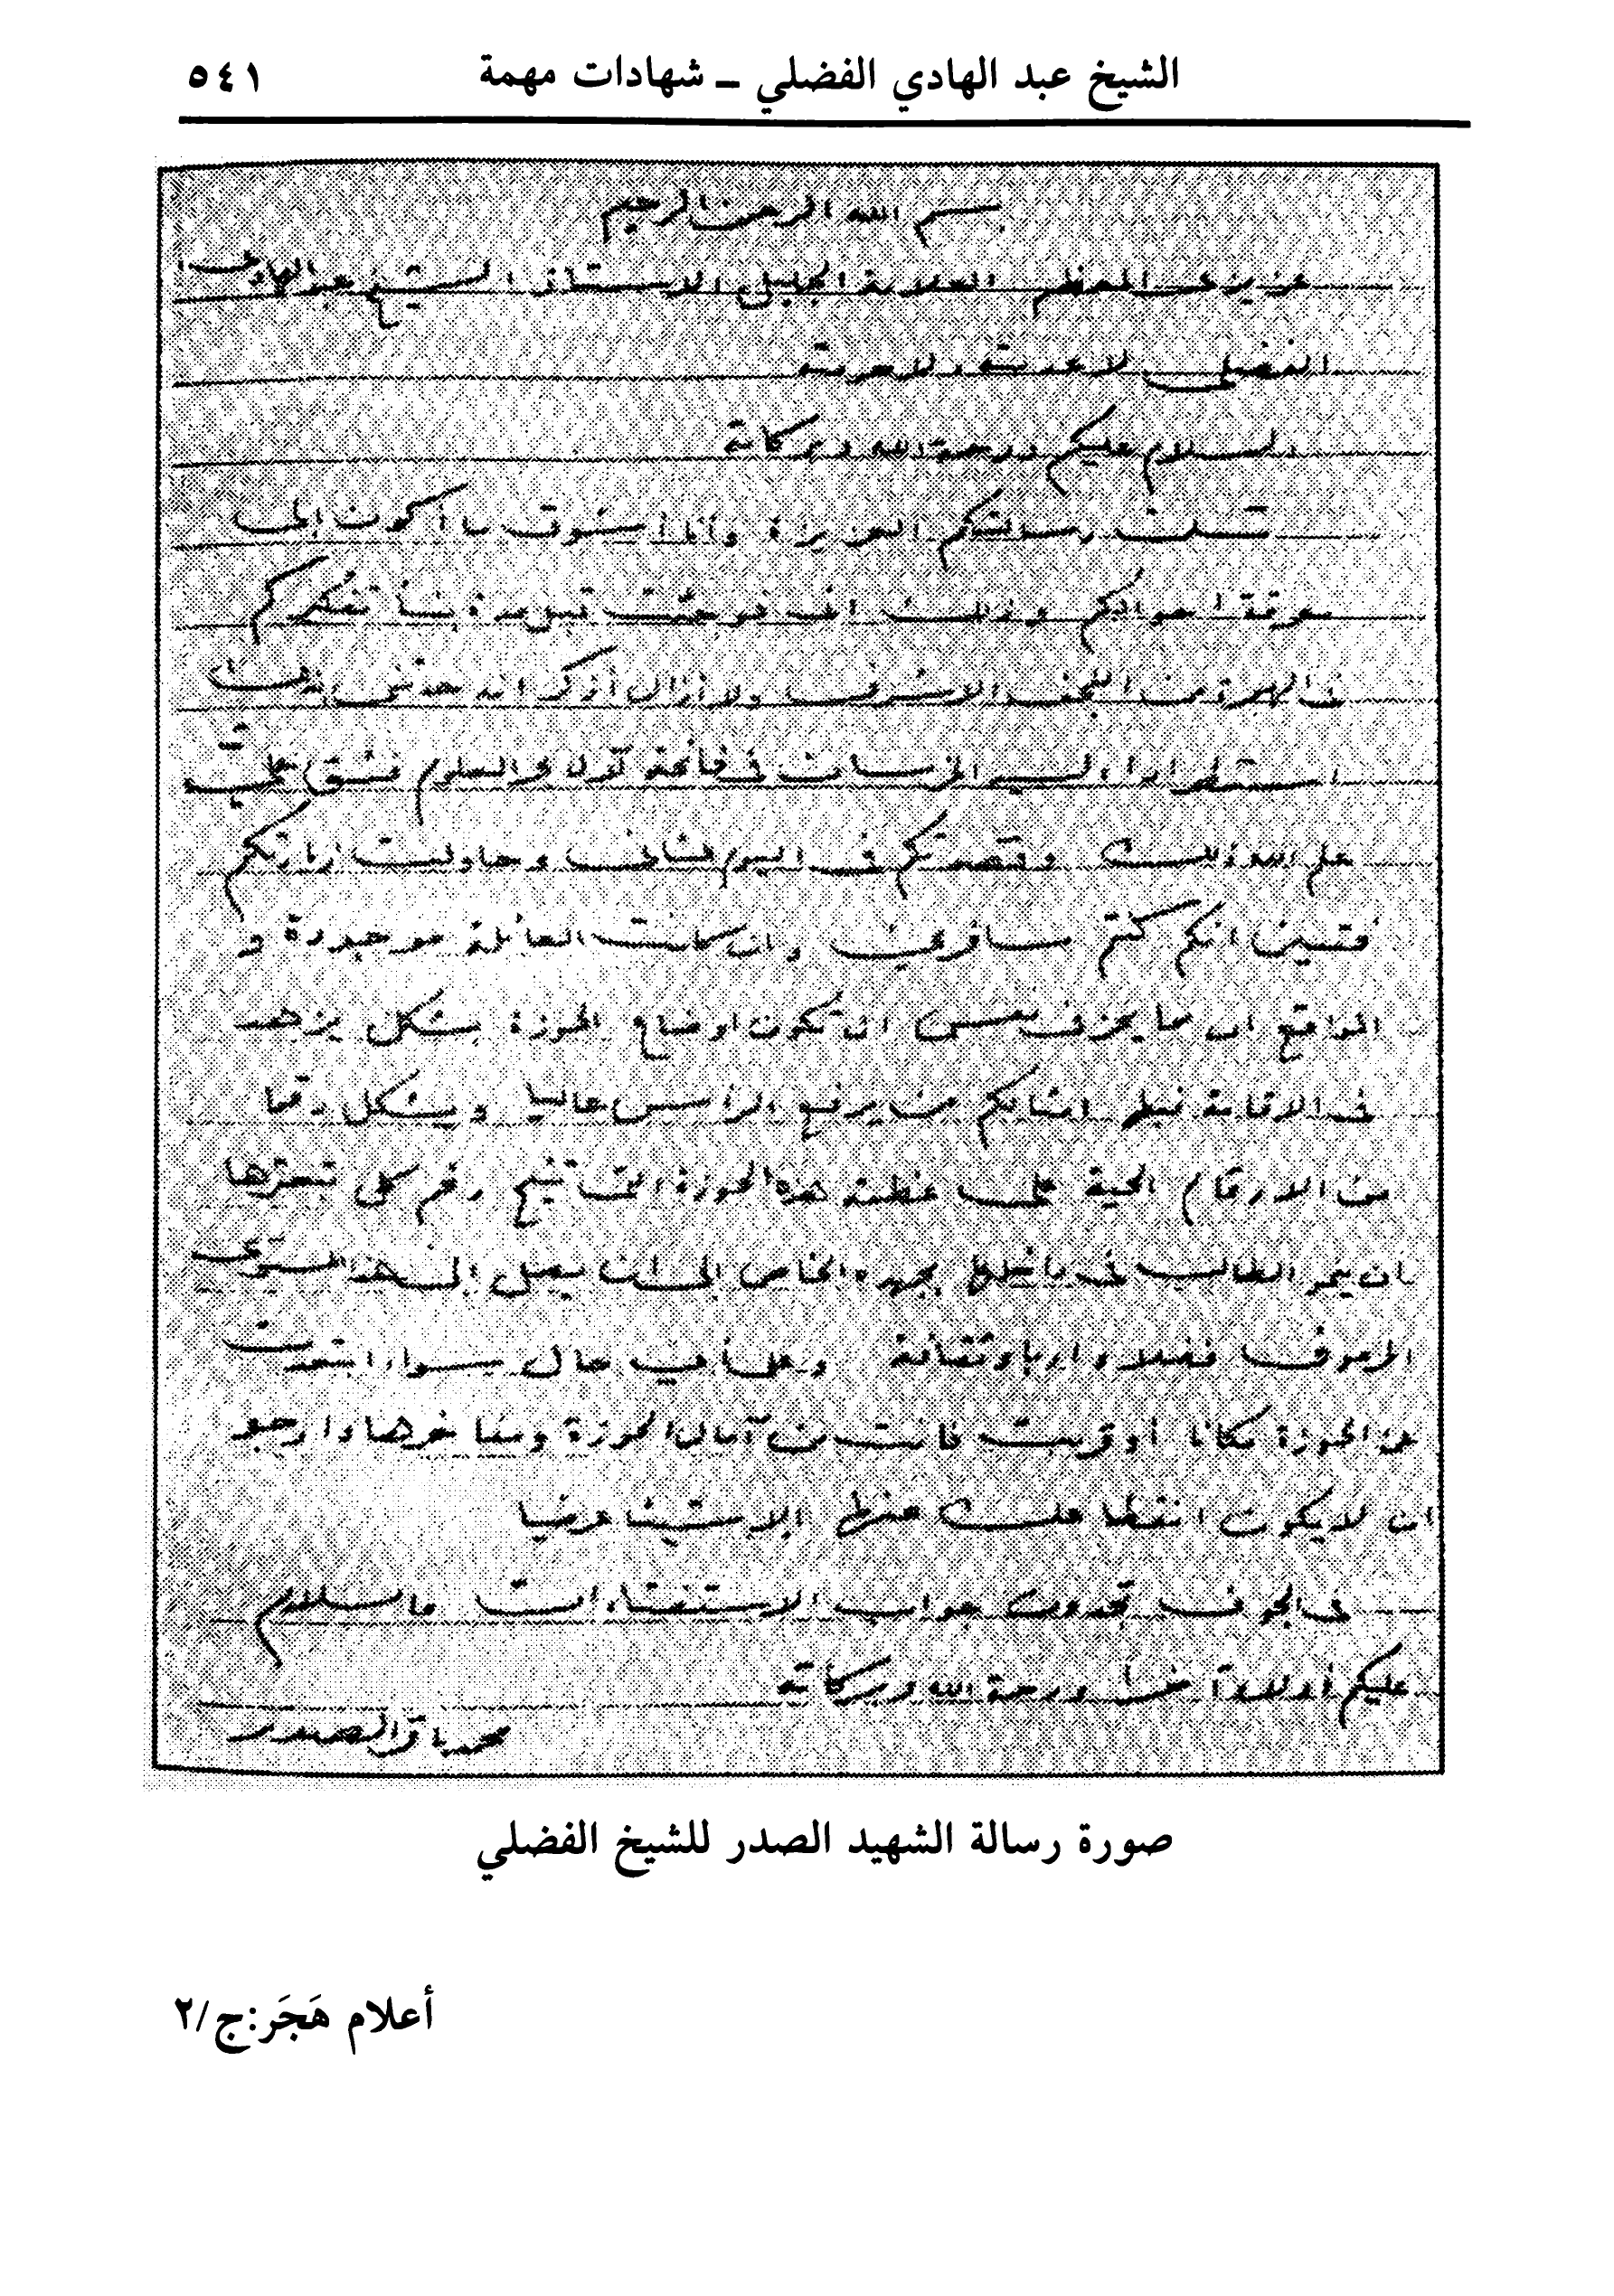 الشيخ عبد الهادي الفضلي ــ شهادات مهمة ٥٤١
بسم الله الرحمن الرحيم
عزيزي المعظم العلامة الجليل الاستاذ الشيخ عبد الهادي
الفضلي لا عدمته ولا حرمته
السلام عليكم ورحمة الله وبركاته
تسلمت رسالتكم العزيزة وأنا أشوق ما أكون إلى
معرفة احوالكم وذلك اني فوجئت قبل مدة بنبأ تفكيركم
في الهجرة من النجف الاشرف ولا أزال أذكر انه حدثني بذلك
استطرادا السيد الخرسان في فاتحة آل بحر العلوم فشق علي
علم الله ذلك وقصدتكم في اليوم الثاني وحاولت زيارتكم
فتبين انكم كنتم مسافرين وان كانت العائلة موجودة و
الواقع ان مما يحز في نفسي ان تكون اوضاع الحوزة بشكل يزهد
في الاقامة فيها امثالكم ممن يرفع الرأس عاليا ويشكل رقما
من الارقام الحية على عظمة هذه الحوزة التي تتيح رغم كل تبعثرها
بأن ينمو الطالب في داخلها بجهده الخاص إلى ان يصل إلى هذا المستوى
المرموق فضلا وادبا وثقافة وعلى أي حال سواء ابتعدت
عن الحوزة مكانا أو قربت فانت من آمال الحوزة ومفاخرها وارجو
ان لا يكون انقطاعك عنها إلا عرضيا
في الجوف تجدون جواب الاستفتاءات والسلام
عليكم أولا وآخرا ورحمة الله وبركاته
محمد باقر الصدر
صورة رسالة الشهيد الصدر للشيخ الفضلي
أعلام هَجَر:ج/٢